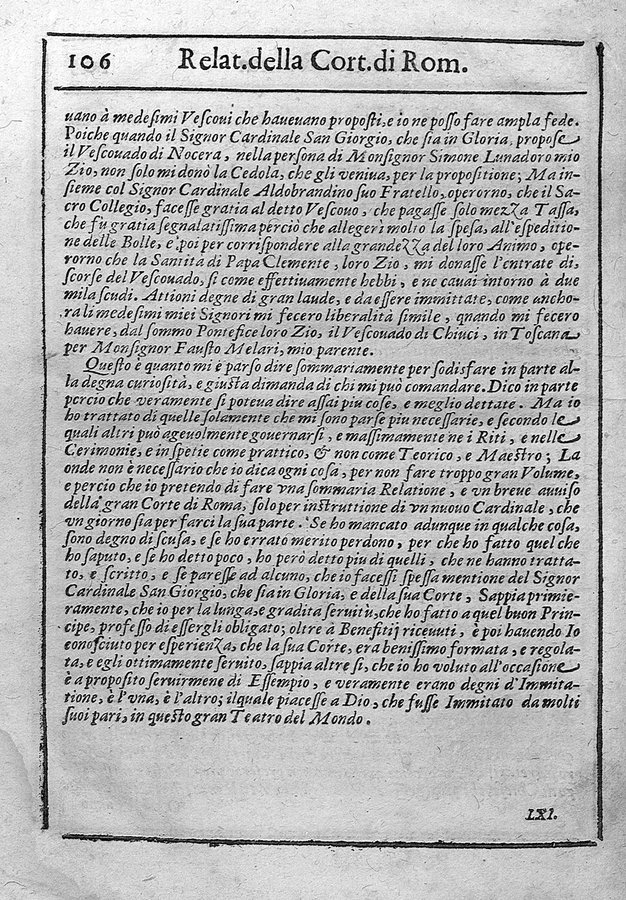 106 Relat.della Cort.di Rom.
uano à medesimi Vescoui che haueuano proposti, e io ne posso fare ampla fede.
Poiche quando il Signor Cardinale San Giorgio, che sia in Gloria, propose
il Vescouado di Nocera, nella persona di Monsignor Simone Lunadoro mio
Zio, non solo mi donò la Cedola, che gli veniua, per la propositione; Ma in-
sieme col Signor Cardinale Aldobrandino suo Fratello, operorno, che il Sa-
cro Collegio, facesse gratia al detto Vescouo, che pagasse solo mezza Tassa,
che fù gratia segnalatissima perciò che allegerì molto la spesa, all'espeditio-
ne delle Bolle, e poi per corrispondere alla grandezza del loro Animo, ope-
rorno che la Santità di Papa Clemente, loro Zio, mi donasse l'entrate di,
scorse del Vescouado, si come effettiuamente hebbi, e ne cauai intorno à due
mila scudi. Attioni degne di gran laude, e da essere immitate, come ancho-
ra li medesimi miei Signori mi fecero liberalità simile, quando mi fecero
hauere, dal sommo Pontefice loro Zio, il Vescouado di Chiuci, in Toscana
per Monsignor Fausto Melari, mio parente.
Questo è quanto mi è parso dire sommariamente per sodisfare in parte al-
la degna curiosità, e giusta dimanda di chi mi può comandare. Dico in parte
percio che veramente si poteua dire assai piu cose, e meglio dettate. Ma io
ho trattato di quelle solamente che mi sono parse piu necessarie, e secondo le
quali altri può ageuolmente gouernarsi, e massimamente ne i Riti, e nelle
Cerimonie, e in spetie come prattico, & non come Teorico, e Maestro; La
onde non è necessario che io dica ogni cosa, per non fare troppo gran Volume,
e percio che io pretendo di fare vna sommaria Relatione, e vn breue auuiso
della gran Corte di Roma, solo per instruttione di vn nuouo Cardinale, che
vn giorno sia per farci la sua parte. Se ho mancato adunque in qualche cosa,
sono degno di scusa, e se ho errato merito perdono, per che ho fatto quel che
ho saputo, e se ho detto poco, ho però detto piu di quelli, che ne hanno tratta-
to, e scritto, e se paresse ad alcuno, che io facessi spessa mentione del Signor
Cardinale San Giorgio, che sia in Gloria, e della sua Corte, Sappia primie-
ramente, che io per la lunga, e gradita seruitù, che ho fatto a quel buon Prin-
cipe, professo di essergli obligato; oltre à Benefitij riceuuti, è poi hauendo Io
conosciuto per esperienza, che la sua Corte, era benissimo formata, e regola-
ta, e egli ottimamente seruito, sappia altre sì, che io ho voluto all'occasione
è a proposito seruirmene di Essempio, e veramente erano degni d'Immita-
tione, è l'vna, è l'altro; ilquale piacesse a Dio, che fusse Immitato da molti
suoi pari, in questo gran Teatro del Mondo.
LXI.